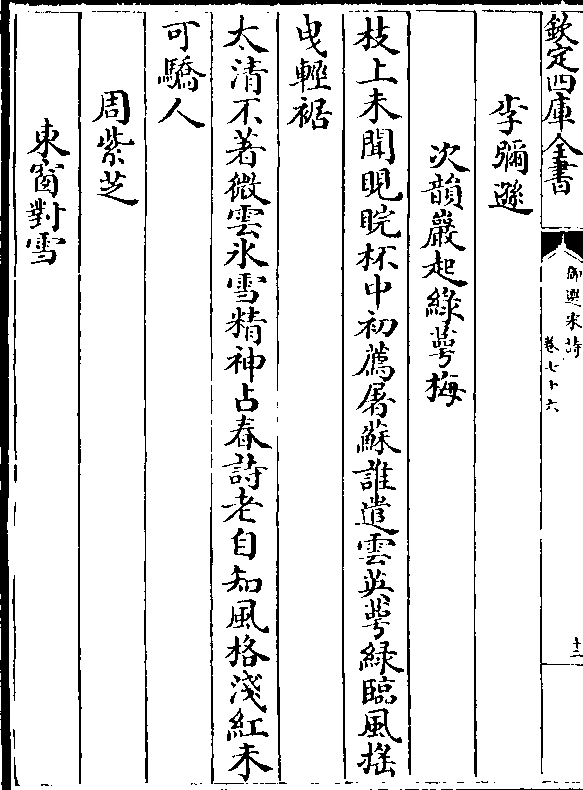 欽定四庫全書
御選宋詩
卷七十六
十二
李彌遜
次韻嚴起綠萼梅
枝上未聞睍睆杯中初薦屠蘇誰遣雲英萼綠臨風搖
曵輕裾
太清不著微雲氷雪精神占春詩老自知風格淺紅未
可驕人
周紫芝
東窗對雪